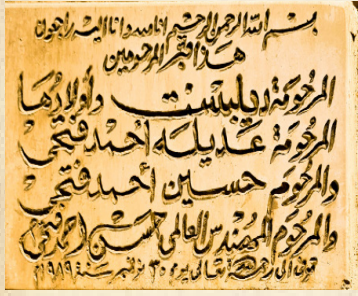 بسم الله الرحمن الرحيم انا لله وانا اليه راجعون
هذا قبر المرحومين
المرحومة ديلبست وأولادها
المرحومة عديله أحمد فتحي
والمرحوم حسين أحمد فتحي
والمرحوم المهندس العالمي حسن احمد فتحي
توفى الى رحمة الله تعالى يوم ٣٠ نوفمبر سنة ١٩٨٩م